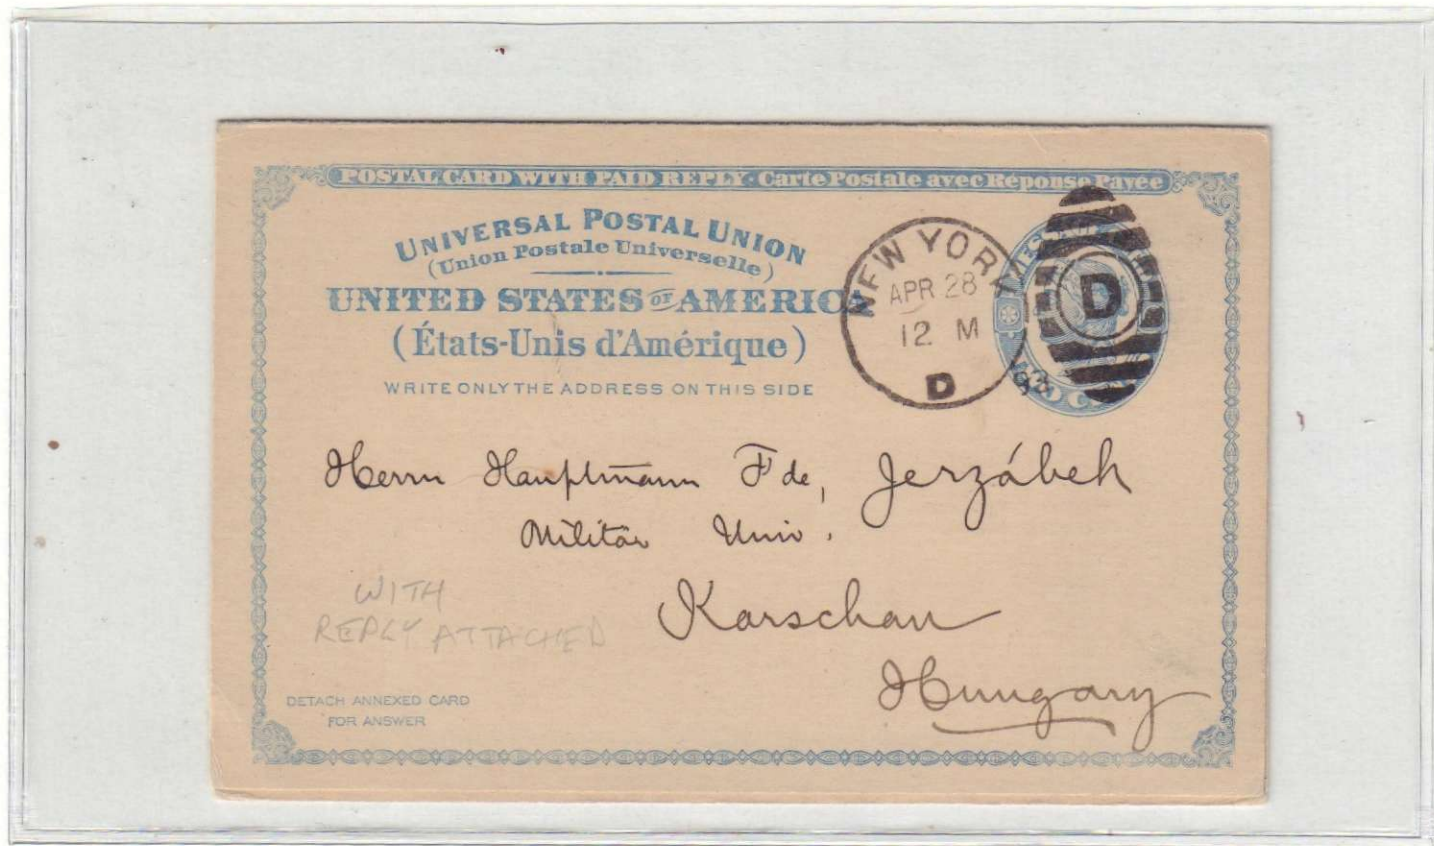 POSTAL CARD WITH PAID REPLY · Carte Postale avec Réponse Payée
UNIVERSAL POSTAL UNION
(Union Postale Universelle)
UNITED STATES OF AMERICA
(États-Unis d'Amérique)
WRITE ONLY THE ADDRESS ON THIS SIDE
NEW YORK
APR 28
12 M
D
93
D
TWO CENTS
Herrn Hauptmann F de, Jerzábek
Militär Univ.
Karschau
Hungary
WITH
REPLY ATTACHED
DETACH ANNEXED CARD
FOR ANSWER